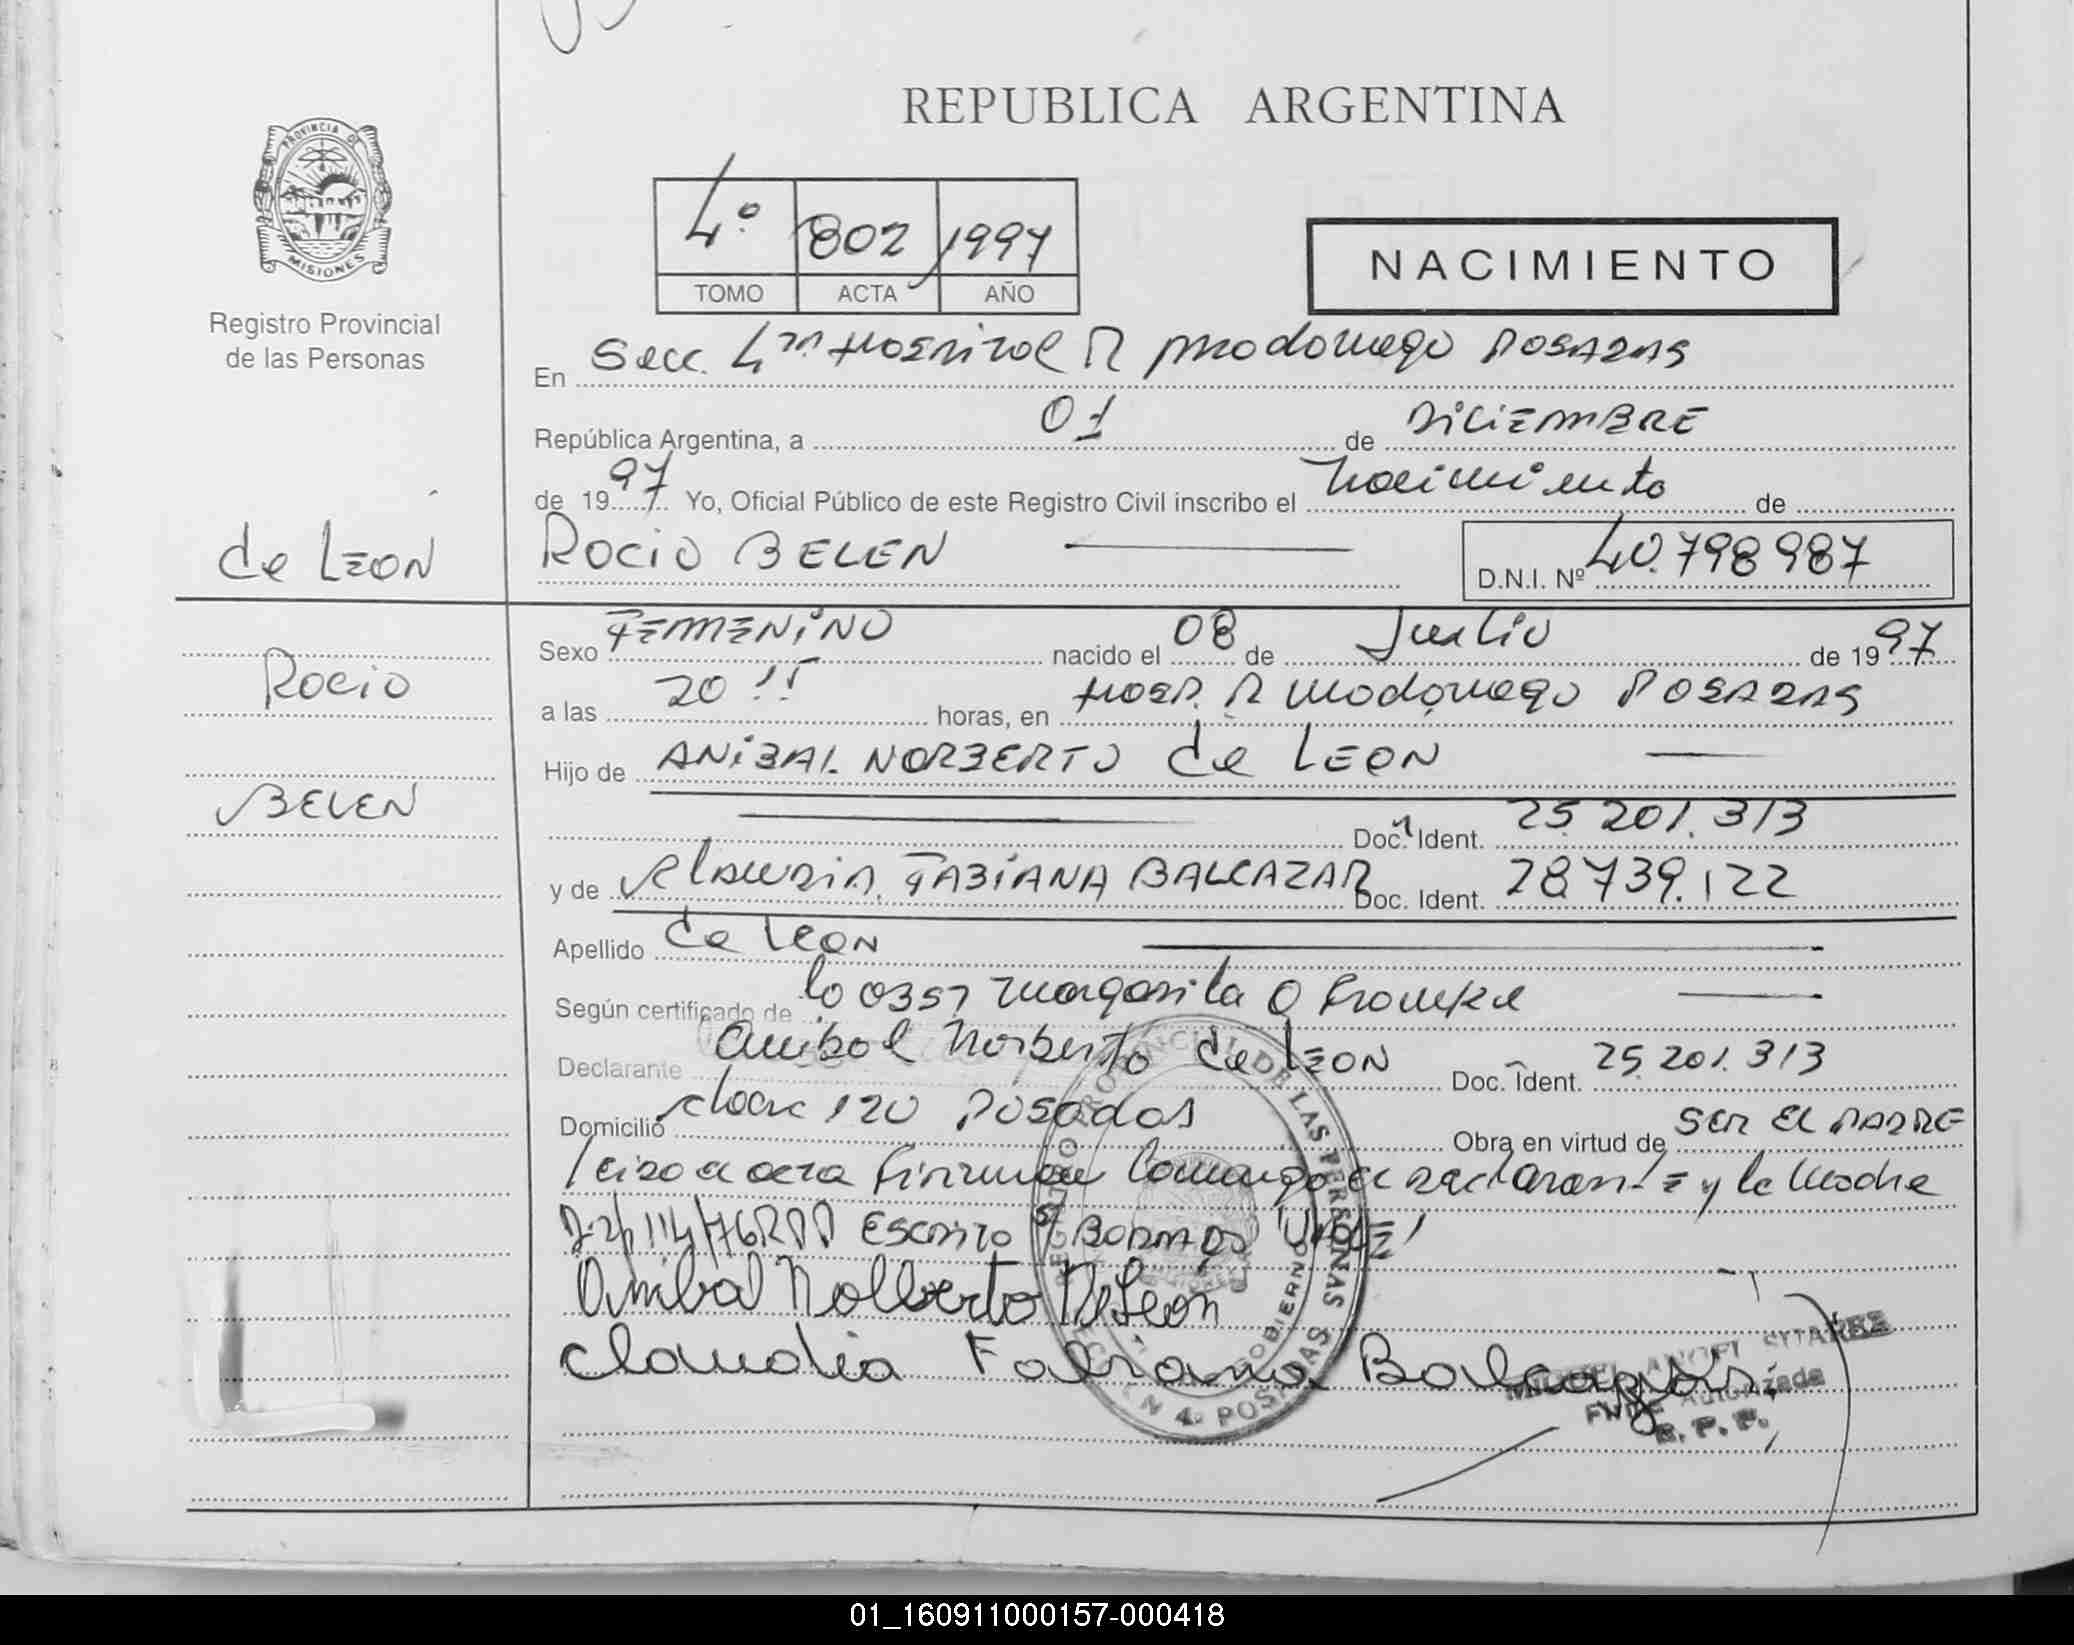 REPUBLICA ARGENTINA
PROVINCIA DE
MISIONES
Registro Provincial
de las Personas
4º 802 1997
TOMO ACTA AÑO
NACIMIENTO
En Secc. 4ta Hospital R Madariaga POSADAS
República Argentina, a 01 de DICIEMBRE
de 1997 Yo, Oficial Público de este Registro Civil inscribo el nacimiento de
de LEON
ROCIO BELEN
D.N.I. Nº 40.798987
Rocio
BELEN
Sexo FEMENINO nacido el 08 de Julio de 1997
a las 20 15 horas, en Hosp. R Madariaga POSADAS
Hijo de ANIBAL NORBERTO de LEON
Doc. Ident. 25.201.313
y de Claudia FABIANA BALCAZAR Doc. Ident. 28739.122
Apellido de Leon
Según certificado de Margarita O
Declarante Anibal Norberto de LEON Doc. Ident. 25.201.313
Domicilio 120 Posadas Obra en virtud de SER EL PADRE
Leida el acta firman conmigo el declarante y la Madre
ESCRITO S/ BORRADO
Anibal Nolberto De Leon
Claudia Fabiana
REGISTRO PROVINCIAL DE LAS PERSONAS
GOBIERNO
POSADAS
MIGUEL ANGEL
Autorizada
R. P. P.
01_160911000157-000418